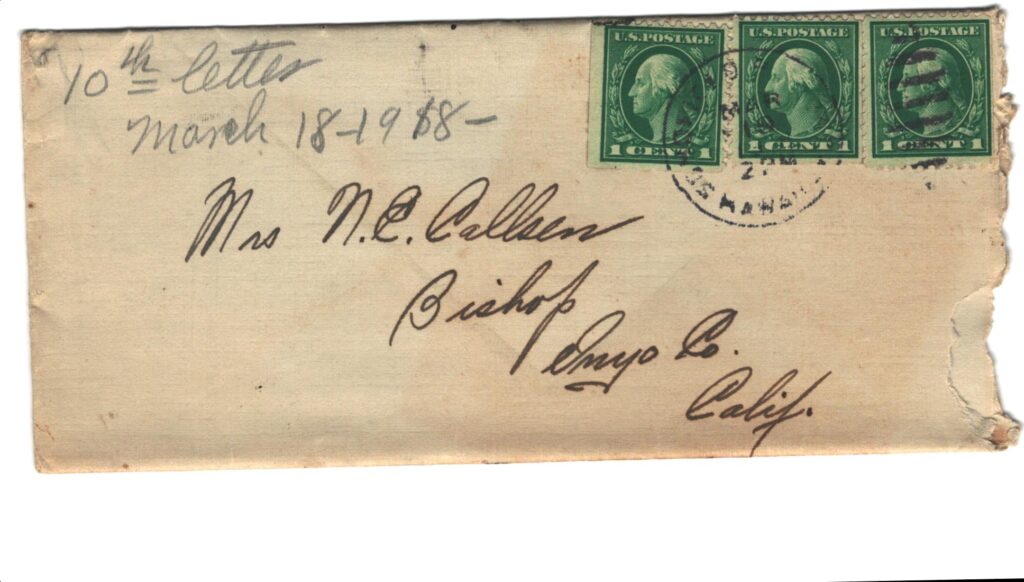 10th letter
March 18-1918-
U.S. POSTAGE U.S. POSTAGE U.S. POSTAGE
1 CENT 1 1 CENT 1 1 CENT 1
MAR
2 PM
HAWAII
Mrs N.C. Callsen
Bishop
Inyo Co.
Calif.